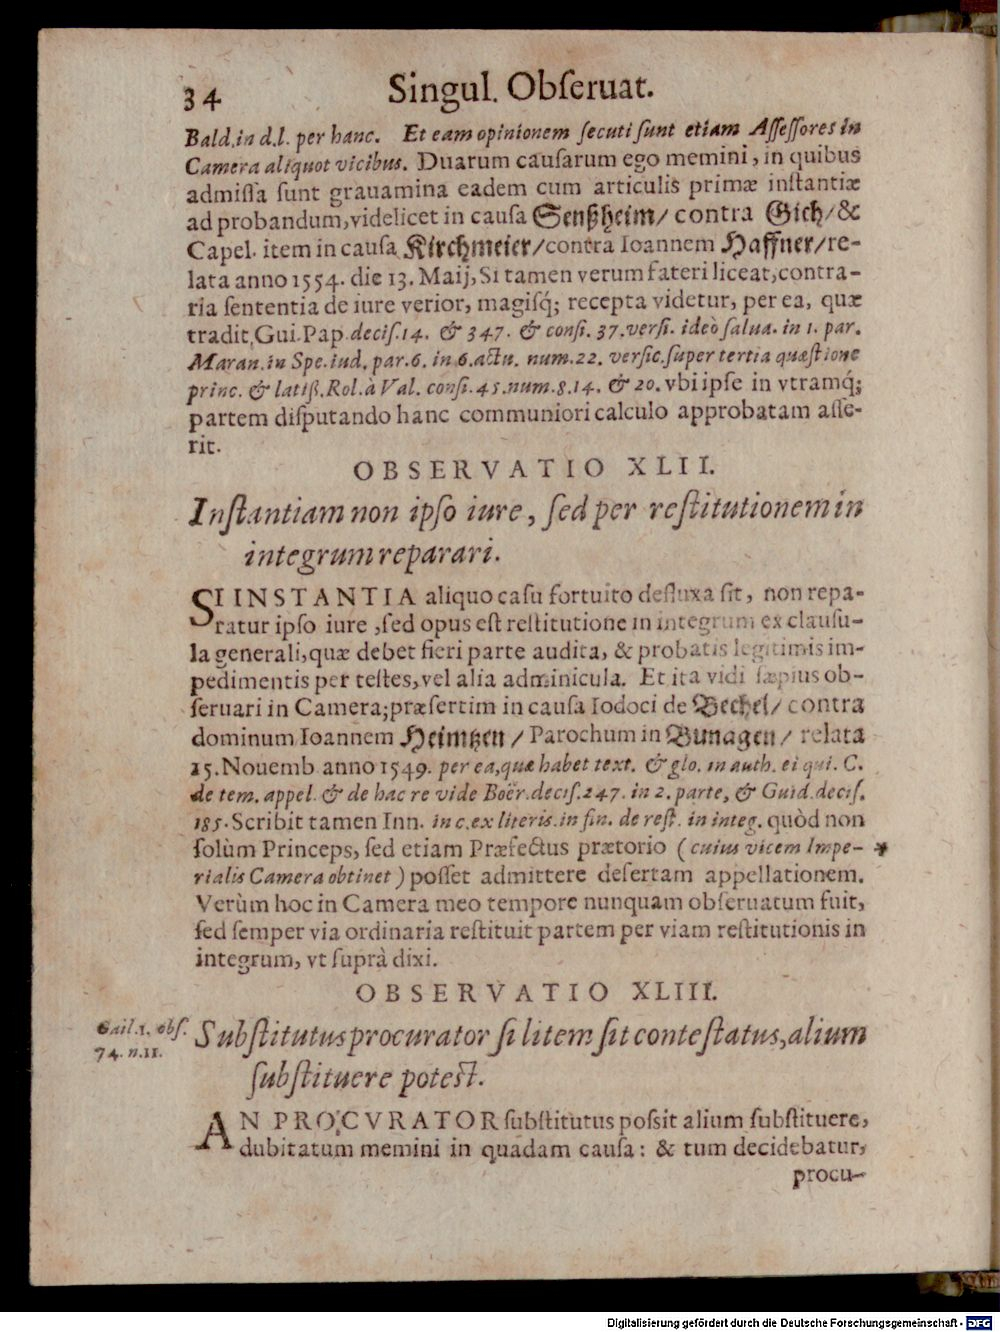 34 Singul. Obſeruat.
Bald. in d. l. per hanc. Et eam opinionem ſecuti ſunt etiam Aſſeſſores in
Camera aliquot vicibus. Duarum cauſarum ego memini, in quibus
admiſſa ſunt grauamina eadem cum articulis primæ inſtantiæ
ad probandum, videlicet in cauſa Senßheim/ contra Gich/ &
Capel. item in cauſa Kirchmeier/ contra Ioannem Haffner/ re-
lata anno 1554. die 13. Maij, Si tamen verum fateri liceat, contra-
ria ſententia de iure verior, magiſq́; recepta videtur, per ea, quæ
tradit, Gui. Pap. deciſ. 14. & 347. & conſi. 37. verſi. ideò ſalua. in 1. par.
Maran. in Spe. iud. par. 6. in 6. actu. num. 22. verſic. ſuper tertia quæſtione
princ. & latiß. Rol. à Val. conſi. 45. num. 8. 14. & 20. vbi ipſe in vtramq́;
partem diſputando hanc communiori calculo approbatam aſſe-
rit.
OBSERVATIO XLII.
Inſtantiam non ipſo iure, ſed per reſtitutionem in
integrum reparari.
SI INSTANTIA aliquo caſu fortuito defluxa ſit, non repa-
ratur ipſo iure, ſed opus eſt reſtitutione in integrum ex clauſu-
la generali, quæ debet fieri parte audita, & probatis legitimis im-
pedimentis per teſtes, vel alia adminicula. Et ita vidi ſæpius ob-
ſeruari in Camera; præſertim in cauſa Iodoci de Bechel/ contra
dominum Ioannem Heimtzen/ Parochum in Bunagen/ relata
15. Nouemb. anno 1549. per ea, quæ habet text. & glo. in auth. ei qui. C.
de tem. appel. & de hac re vide Boër. deciſ. 247. in 2. parte, & Guid. deciſ.
185. Scribit tamen Inn. in c. ex literis. in fin. de reſt. in integ. quòd non
ſolùm Princeps, ſed etiam Præfectus prætorio (cuius vicem Impe- *
rialis Camera obtinet) poſſet admittere deſertam appellationem.
Verùm hoc in Camera meo tempore nunquam obſeruatum fuit,
ſed ſemper via ordinaria reſtituit partem per viam reſtitutionis in
integrum, vt ſuprà dixi.
OBSERVATIO XLIII.
Gail. 1. obſ.
74. n. 11.
Subſtitutus procurator ſi litem ſit conteſtatus, alium
ſubſtituere poteſt.
AN PROCVRATOR ſubſtitutus poſſit alium ſubſtituere,
dubitatum memini in quadam cauſa: & tum decidebatur,
procu-
Digitalisierung gefördert durch die Deutsche Forschungsgemeinschaft - DFG